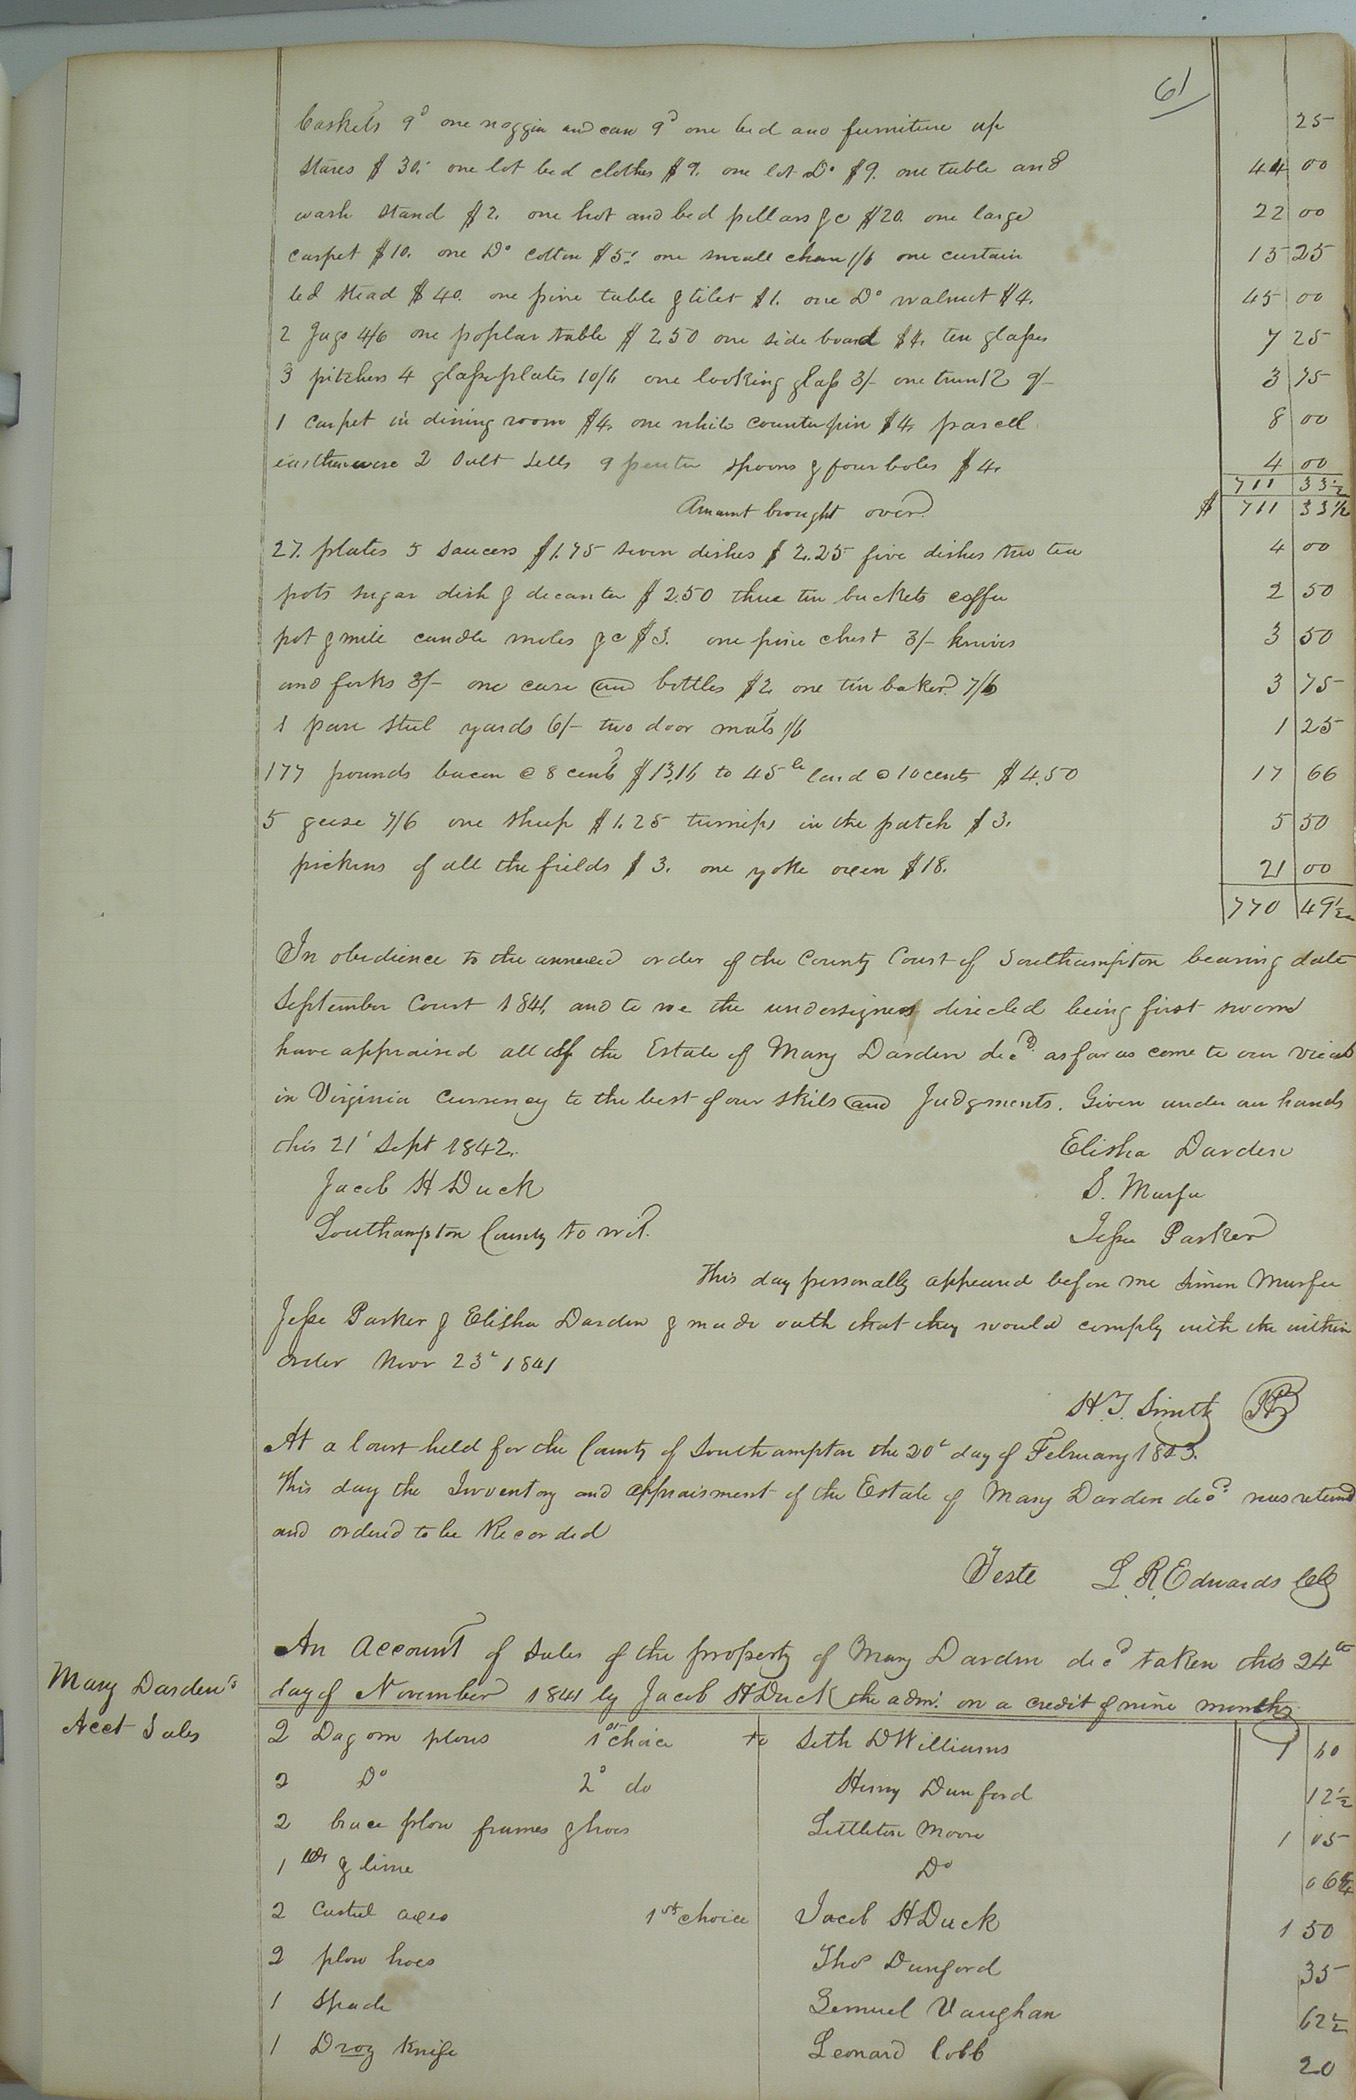 61
baskets 9d one noggin and can 9d one bed and furniture up 25
stares $30. one lot bed clothes $9. one lot Do $9. one table and 44 00
wash stand $2. one hot and bed pillars &c $20. one large 22 00
carpet $10. one Do cotton $5. one small chair 1/6 one curtain 15 25
bed stead $40. one pine table & tilet $1. one Do walnut $4. 45 00
2 Jugs 4/6 one poplar table $2.50 one side board $4. ten glasses 7 25
3 pitchers 4 glass plates 10/6 one looking glass 3/- one trunk 9/- 3 75
1 carpet in dining room $4. one white counterpin $4. parcell 8 00
earthenware 2 Salt Sells 9 pewter spoons & four boles $4. 4 00
711 33½
Amount brought over $ 711 33½
27. plates 5 saucers $1.75 seven dishes $2.25 five dishes two tea 4 00
pots sugar dish & decanter $2.50 three tin buckets coffee 2 50
pot & mill candle moles &c $3. one pine chest 3/- knives 3 50
and forks 3/- one case and bottles $2. one tin baker 7/6 3 75
1 pare steel yards 6/- two door mats 1/6 1 25
177 pounds bacon @ 8 cents $13.16 to 45 lb lard @ 10 cents $4.50 17 66
5 geese 7/6 one sheep $1.25 turnips in the patch $3. 5 50
pickins of all the fields $3. one yoke oxen $18. 21 00
770 49½
In obedience to the annexed order of the County Court of Southampton bearing date
September Court 1841, and to we the undersigned directed being first sworn
have appraised all of the Estate of Mary Darden decd. as far as come to our view
in Virginia Currency to the best of our skils and Judgments. Given under our hands
this 21 Sept 1842. Elisha Darden
Jacob H Duck S. Murfee
Southampton County to wit. Jesse Parker
This day personally appeared before me Simon Murfee
Jesse Parker & Elisha Darden & made oath that they would comply with the within
order Novr 23d 1841
H. T. Smith JP
At a Court held for the County of Southampton the 20th day of February 1843.
This day the Inventory and appraisment of the Estate of Mary Darden decd was returned
and ordered to be Recorded
Teste L. R. Edwards Clk
An Account of Sales of the property of Mary Darden decd taken this 24th
Mary Darden's day of November 1841 by Jacob H Duck the admr. on a credit of nine months
Acct Sales
2 Dagorn plows 1st choice to Seth D Williams 1 60
2 Do 2d do Henry Dunford 12½
2 brace plow frames & hoes Littleton Moore 1 05
1 & lime Do 06¼
2 Casteel axes 1st choice Jacob H Duck 1 50
2 plow hoes Thos Dunford 35
1 Spade Lemuel Vaughan 62½
1 Droy Knife Leonard Cobb 20